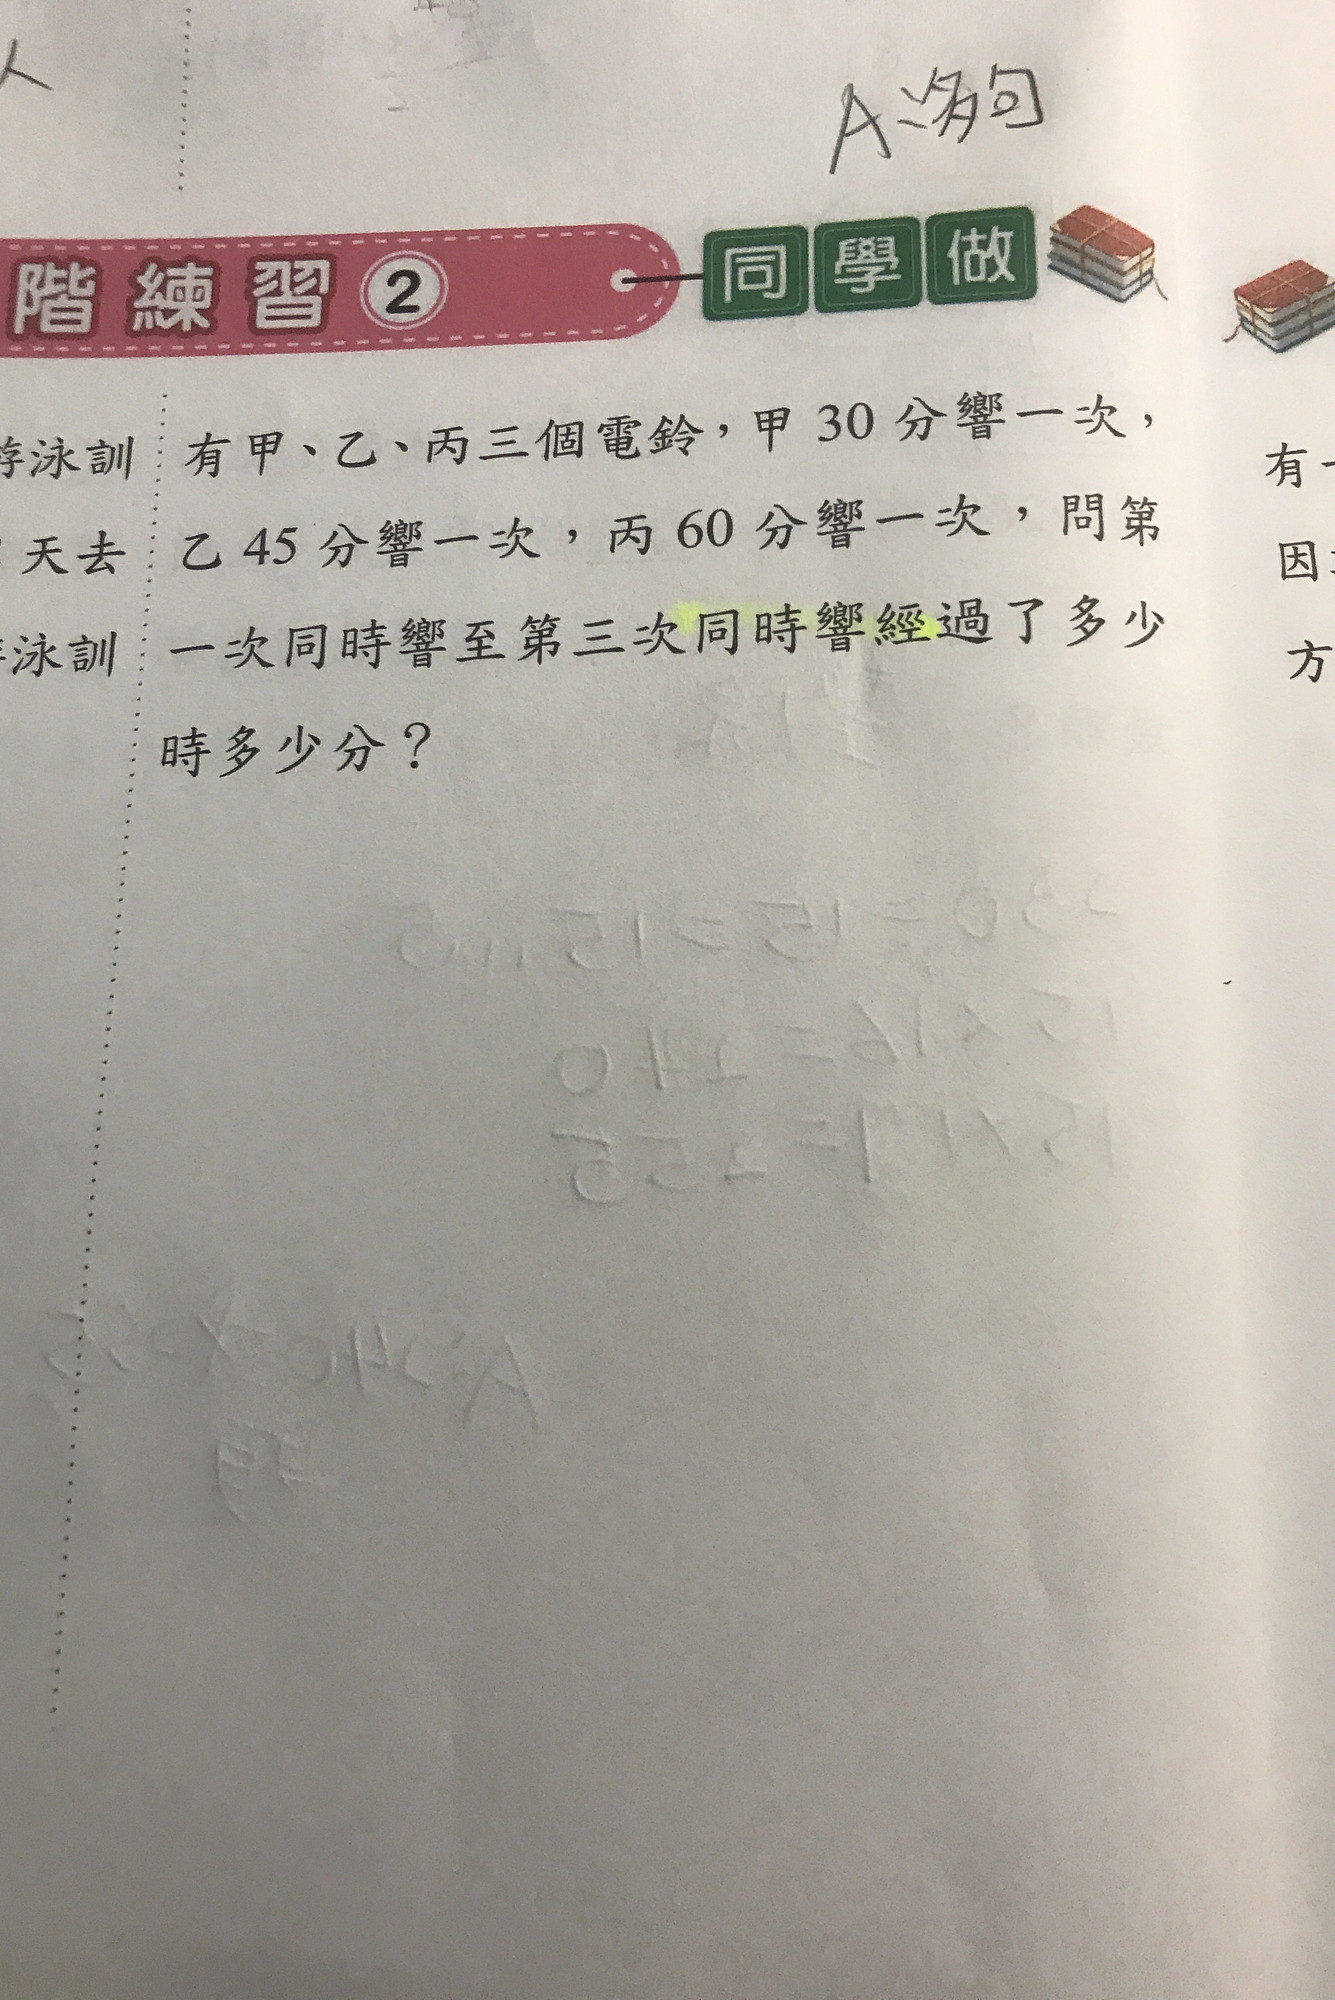 人
A：多句
階練習2 同學做
有甲、乙、丙三個電鈴，甲 30 分響一次，
乙 45 分響一次，丙 60 分響一次，問第
一次同時響至第三次同時響經過了多少
時多少分？
游泳訓
天去
泳訓
有一
因
方